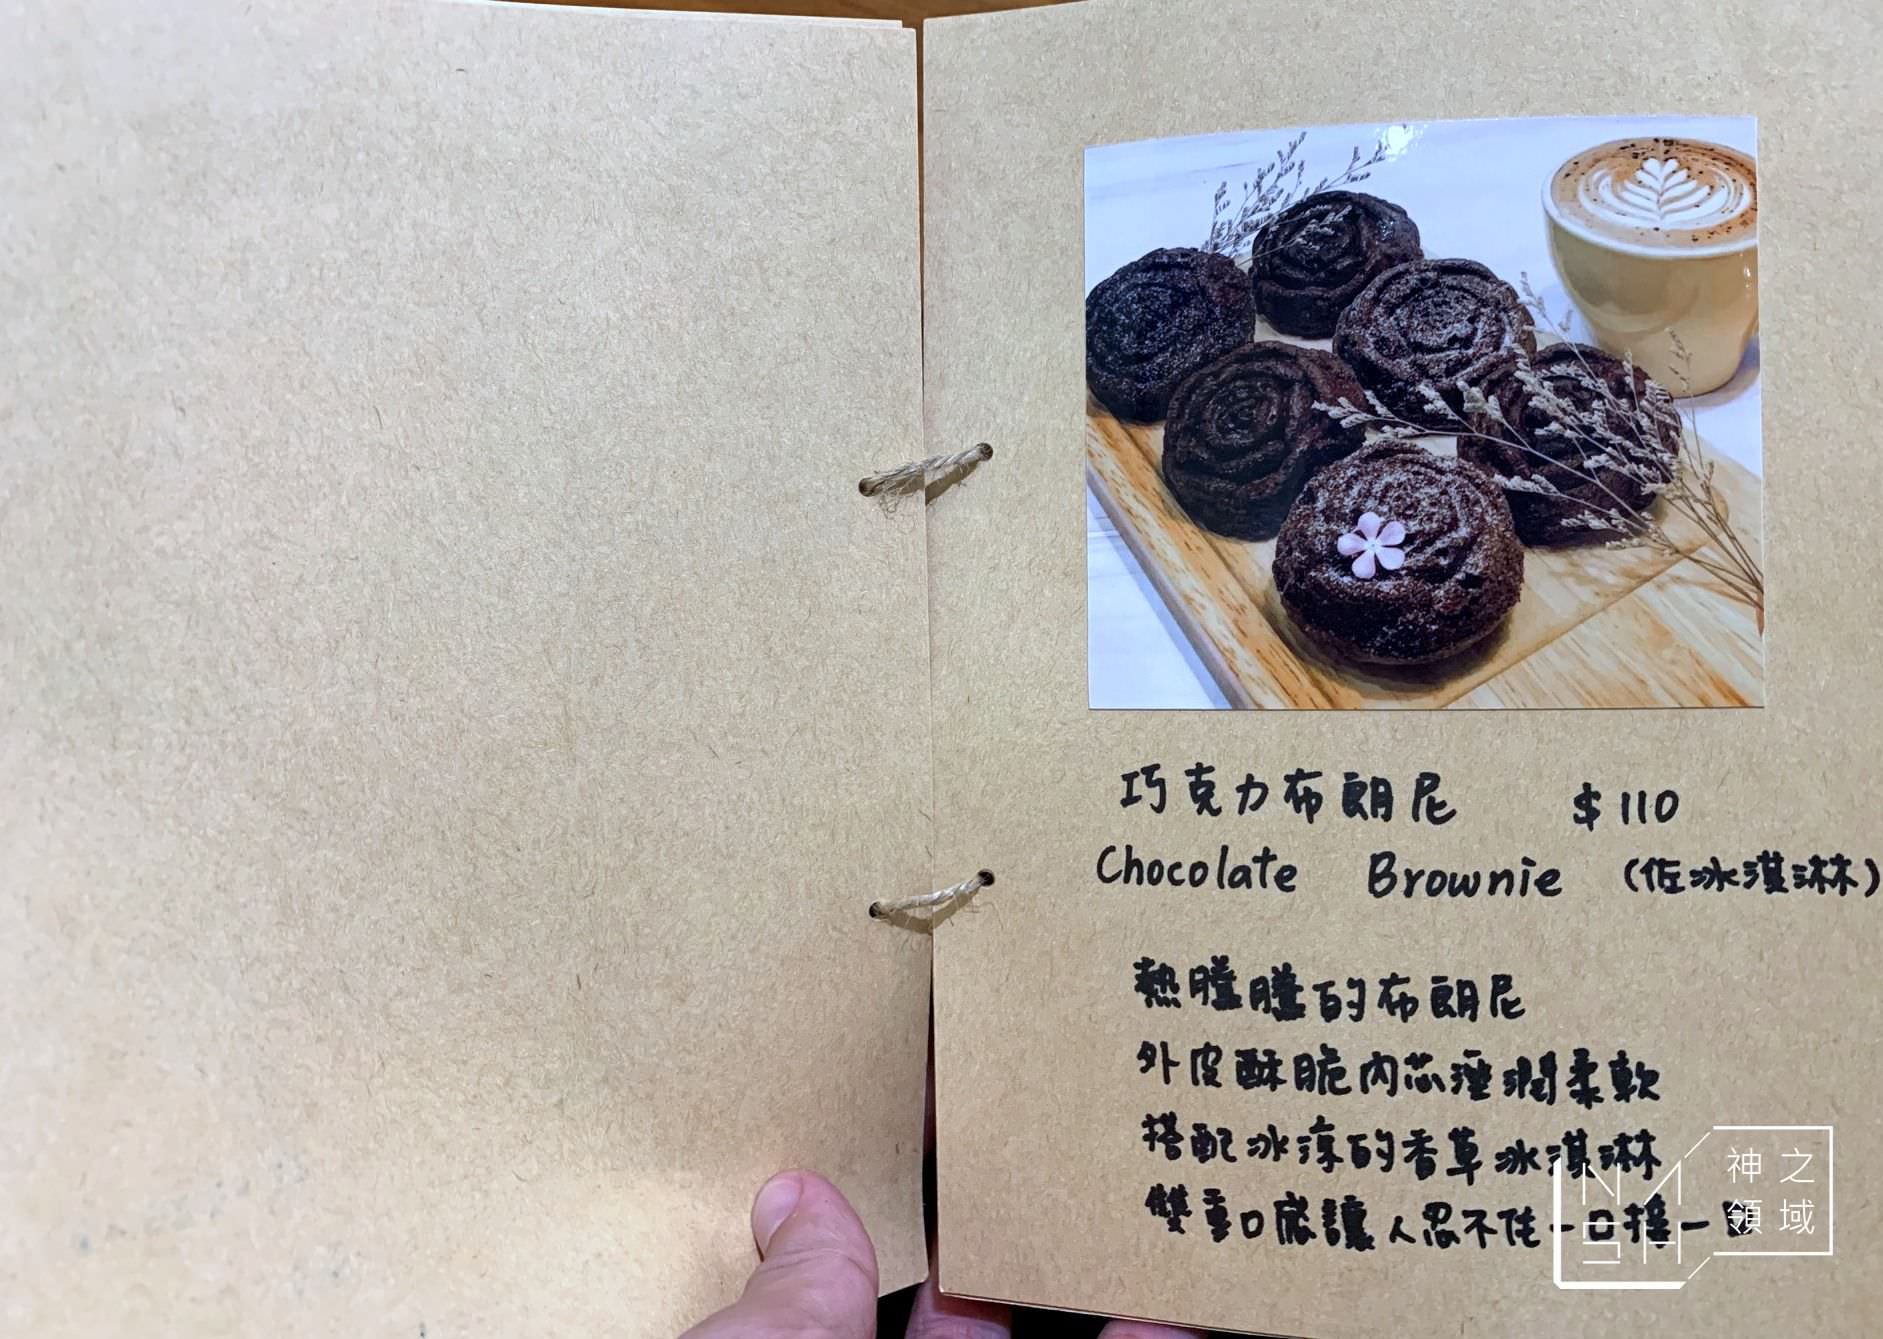 巧克力布朗尼 $110
Chocolate Brownie (佐冰淇淋)
熱騰騰的布朗尼
外皮酥脆內芯溼潤柔軟
搭配冰涼的香草冰淇淋
雙重口感讓人忍不住一口接一口
神之領域
NASH